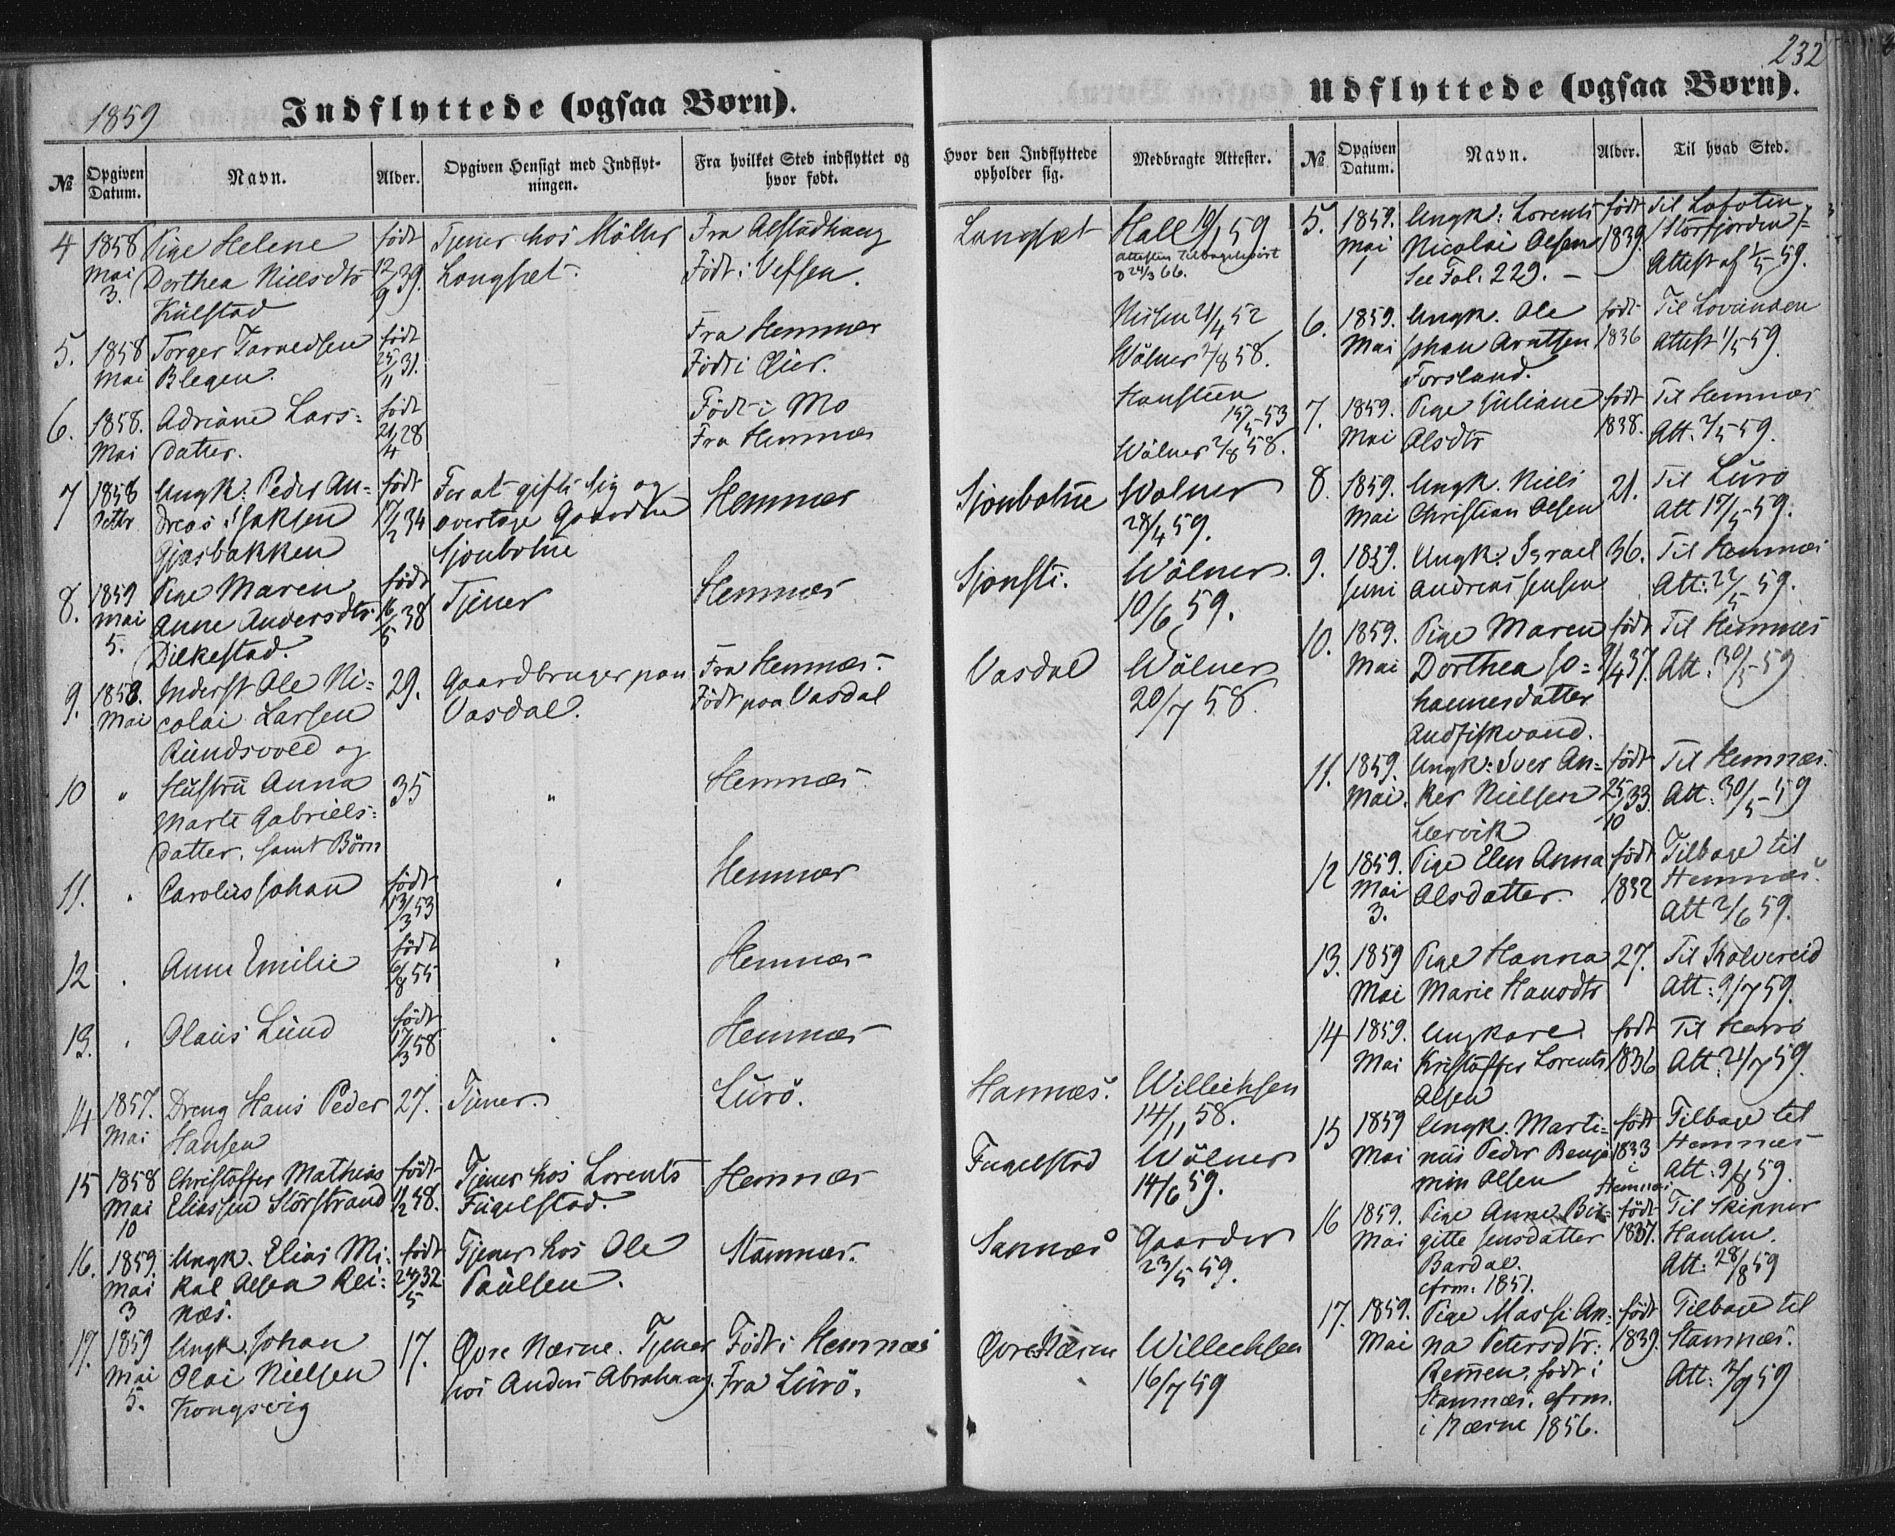 1859
Indflyttede (ogsaa Børn).
№
Opgiven Datum.
Navn.
Alder.
Opgiven Hensigt med Indflytningen.
Fra hvilket Sted indflyttet og hvor født.
4
1858
Mai
3.
Pige Helene
Dorthea Nielsdtr
Kulstad
født
12/9 39.
Tjener hos Möller
Langsæt.
Fra Alstadhaug
Født i Vefsen.
5.
1858
Mai
Torger
Blegen.
født
25/11 31.
Fra Hemnæs
Født i
6.
1858.
Mai
Adriane Lars=
datter.
født
21/4 28
Født i Mo
Fra Hemnæs
7
1858
Ungk: Peder An=
dreas Isaksen
Gjæsbakken
født
17/2 34
For at gifte sig og
overtage Gaarden
Sjonbotne
Hemnæs
8.
1859
Mai
5.
Pige Maren
Anne Andersdtr.
Dilkestad.
født
16/5 38
Tjener
Hemnæs
9.
1858.
Mai
Inderst Ole Ni=
colai Larsen
Rundsvold og
29.
Gaardbruger paa
Vasdal.
Fra Hemnæs.
Født paa Vasdal
10
"
Hustru Anna
Marte Gabriels=
datter. samt Børn
35
"
Hemnæs.
11.
Carolus Johan
født
13/3 53
Hemnæs
12
Anne Emilie
født
6/8 55
Hemnæs
13.
Olaus Lund
født
17/3 58.
Hemnæs
14
1857.
Mai
Dreng Hans Peder
Hansen
27.
Tjener.
Lurö.
15
1858
Mai
10
Christoffer Mathias
Eliassen Storstrand
født
Tjener hos Lorents
Fugelstad.
Hemnæs
16.
1859.
Mai
3
Ungk. Elias Mi=
kal Olsen Rei=
næs.
født
24/5 32
Tjener hos Ole
Paulsen.
Stamnæs.
17.
1859
Mai
5.
Ungk. Johan
Olai Nielsen
Kongsvig
17.
Øvre Nærne. Tjener
hos Anders Abraham.
Født i Hemnæs
Fra Lurö.
232
Udflyttede (ogsaa Børn).
Hvor den Indflyttede opholder sig.
Medbragte Attester.
№
Opgiven Datum.
Navn.
Alder.
Til hvad Sted.
Langsæt
Hall 19/1 59
Attesten tilbageleveret
24/3 66.
Nissen 21/4 52
Wölner 2/8 58.
Hansteen
15/5 53
Wölner 2/8 58.
Sjonbotne
Wölner
28/4 59.
Sjonsti.
Wölner.
10/6 59.
Vasdal
Wölner
20/7 58.
Hannæs.
Willichsen
14/11 58.
Fugelstad
Wölner
14/6 59.
Sannæs
Gaarder
23/5 59.
Øvre Nærne
Willichsen
16/7 59
5.
1859.
Mai
1
Ungk: Lorents
Nicolai Olsen
See Fol. 229. -
født
1839.
Til Lofoten,
Storfjorden
Attest af 1/5 59.
6.
1859.
Mai
Ungk. Ole
Johan Arntsen
Forsland.
født
1836
Til Lovunden
Attest 1/5 59.
7.
1859.
Mai
Pige Juliane
Olsdtr
født
1838.
Til Hemnæs
Att. 7/5 59.
8.
1859.
Mai
Ungk. Niels
Christian Olsen
21.
Til Lurö
Att 17/5 59.
9.
1859.
Juni
Ungk: Israel
Andreas Jensen
36.
Til Hemnæs
Att: 22/5 59.
10.
1859.
Mai
Pige Maren
Dorthea Jo=
hannesdatter
Andfiskvand.
født
9/4 37.
Til Hemnæs
Att: 30/5 59
11.
1859.
Mai.
Ungk: Iver An=
ker Nielsen
Lervik
født
25/10 33
Til Hemnæs.
Att: 30/5 59
12
1859.
Mai
3.
Pige Elen Anna
Olsdatter.
født
1832
Tilbage til
Hemnæs.
Att 2/6 59.
13.
1859
Mai
Pige Hanna
Marie Hansdtr
27.
Til Kolvereid
Att: 9/7 59.
14
1859.
Mai
Ungkare
Kristoffer Lorents
Olsen
født
1836
Til Herrö
Att: 21/7 59.
15
1859
Mai
Ungk. Marti=
nus Peder Benja
min Olsen
født
1833
i
Hemnæs
Tilbage til
Hemnæs
Att: 9/8 59.
16
1859.
Mai
Pige Anne Bir=
gitte Jensdatter
Bardal.
cfrm. 1851.
født
1837.
Til Skipper
Hansen.
Att: 28/8 59
17.
1859.
Mai
Pige Massi An=
na Petersdtr.
Remen, født i
Stamnæs. cfrm.
i Nærne 1856.
født
1839.
Tilbage til
Stamnæs.